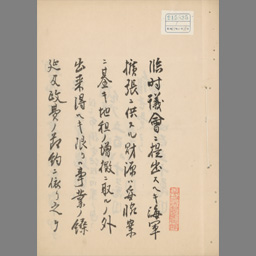 臨時議會ニ提出スヘキ海軍
擴張ニ供スル財源ハ妥協案
ニ基キ地租ノ增徵ニ取ルノ外
出来得ヘキ限リ事業ノ繰
延及政費ノ節約ニ依リ之ヲ